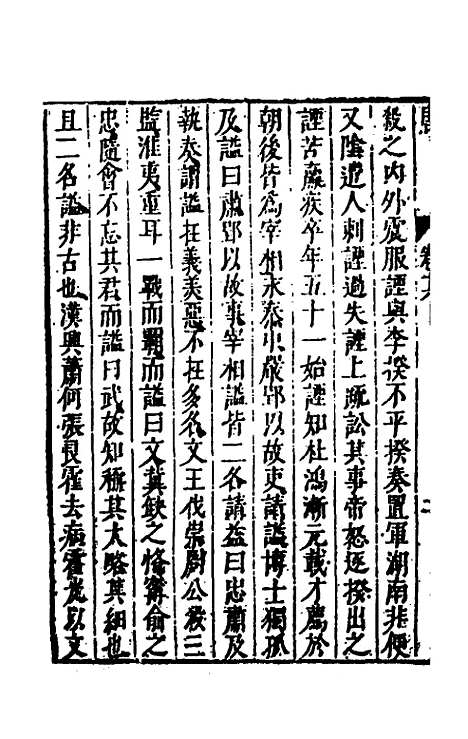 殺之内外震服諲與李揆不平揆奏置軍湖南非便
又陰遣人刺諲過失諲上疏訟其事帝怒逐揆出之
諲苦羸疾卒年五十一始諲知杜鴻漸元載才薦於
朝後皆爲宰相永泰中嚴郢以故吏請謚博士獨孤
及謚曰肅郢以故事宰相謚皆二名請益曰忠肅及
執奏謂謚在義美惡不在多名文王伐崇周公殺三
監淮夷重耳一戰而覇而謚曰文冀缺之恪甯俞之
忠隨會不忘其君而謚曰武故知稱其大略其細也
且二名謚非古也漢興蕭何張良霍去病霍光以文